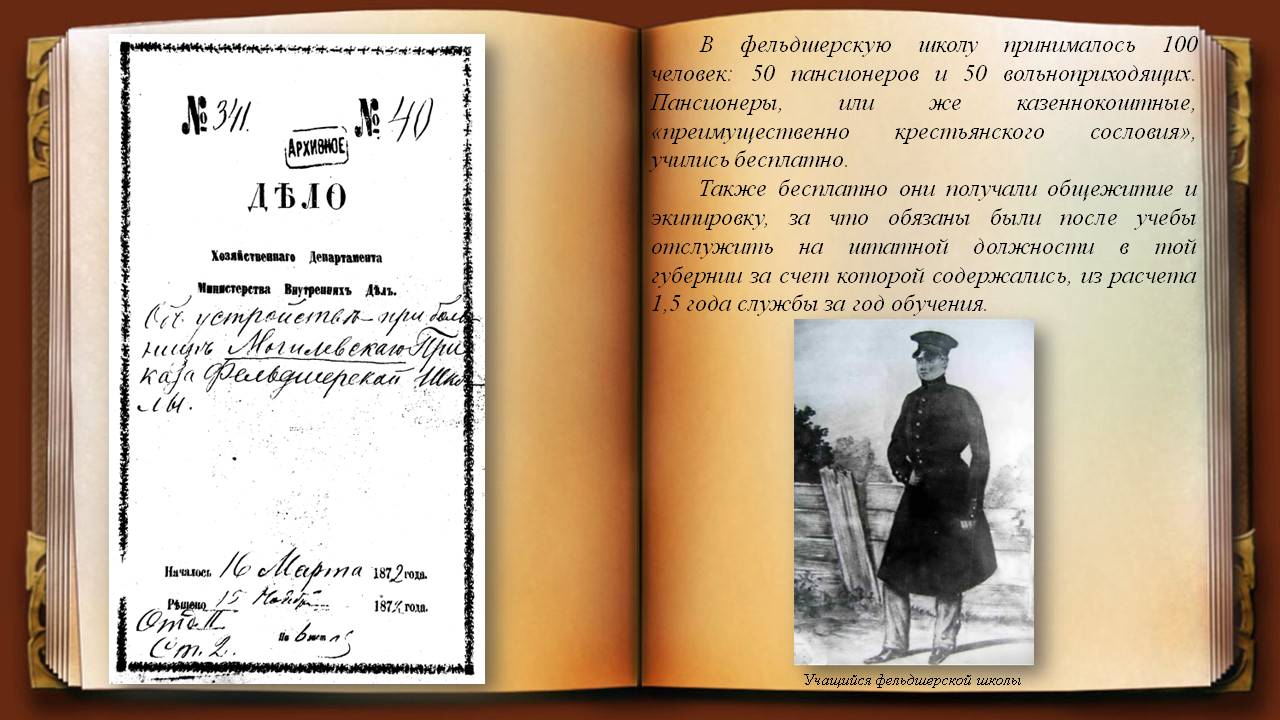 № 341. № 40
АРХИВНОЕ
ДѢЛО
Хозяйственнаго Департамента
Министерства Внутреннихъ Дѣлъ.
Объ устройствѣ при боль-
ницѣ Могилевскаго При
каза Фельдшерской Шко-
лы.
Началось 16 Марта 1872 года.
Рѣшено 15 Ноября 187 года.
Отд II
Ст. 2.
На 6
В фельдшерскую школу принималось 100
человек: 50 пансионеров и 50 вольноприходящих.
Пансионеры, или же казеннокоштные,
«преимущественно крестьянского сословия»,
учились бесплатно.
Также бесплатно они получали общежитие и
экипировку, за что обязаны были после учебы
отслужить на штатной должности в той
губернии за счет которой содержались, из расчета
1,5 года службы за год обучения.
Учащийся фельдшерской школы